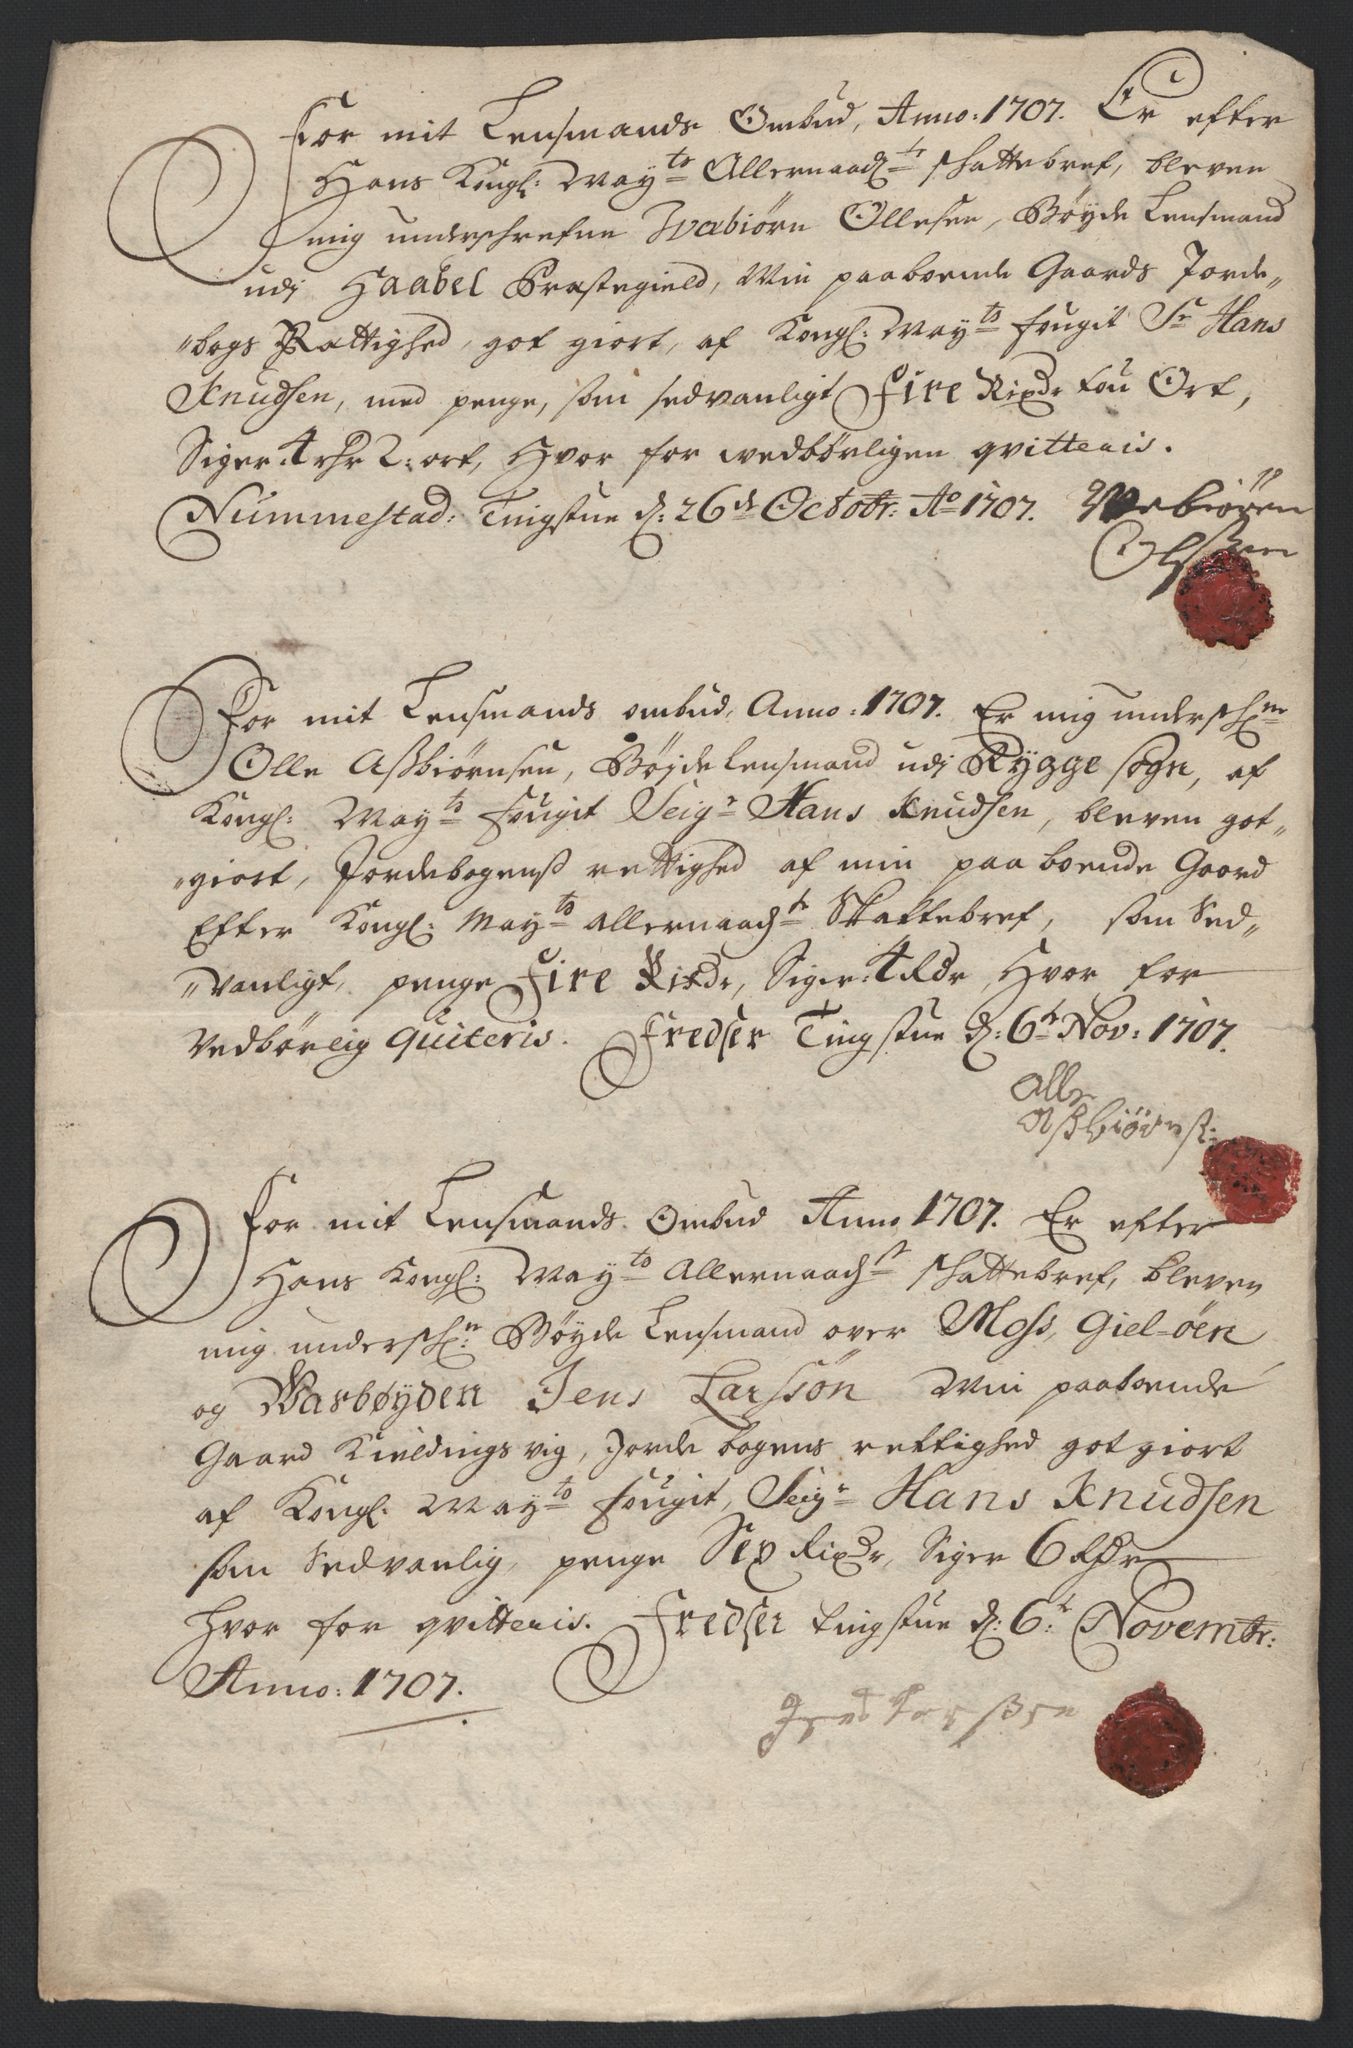 For mit Lensmands Ombud, Anno: 1707. Er efter
Hans Kongl: May:ts Allernaadl:st schattebref, bleven
mig underschrefne Wabiørn Ollesen, Bøyde Lensmand
udj Haabel Præstegield, Min paaboende Gaards Jorde„
„bogs Rættighed, got giort, af Kongl: May:ts fougit Sr Hans
Knudsen, med penge, som sedvanligt Fire Rixdr tou Ort,
Siger: 4 rdr 2: ort, Hvor for wedbørligen qvitteris.
Nümmestad: Tingstue d: 26de Octobr: Ao 1707. Webiøren
Olssen
For mit Lensmands ombud, Anno: 1707. Er mig undersch:ne
Olle Assbiørnsen, Bøjde lensmand udj Rygge sogn, af
Kongl: May:ts fougit Seigr Hans Knudsen, bleven got„
„giort, Jordebogenss rettighed af min paa boende Gaord
Efter Kongl: May:ts allernaad:ste Skattebref, som Sed„
„vanligt, penge Fire Rixdr, Siger: 4 Rdr, Hvor for
Vedbørlig Quiteris. Fredser Tingstue d: 6te Nov: 1707.
Olle
Assbiørns:
For mit Lensmands Ombud Anno 1707. Er efter
Hans Kongl: May:ts Allernaad:st schattebref, bleven
mig undersch:ne Bøyde Lensmand over Moss, Giel-øen
og Warbøyden Jens Larssøn Min paaboende
Gaard Kieldingsvig, Jorde bogens rettighed got giort
af Kongl: May:ts fougit, Seigr Hans Knudsen
som Sedvanlig, penge Sex Rixdr, Siger 6 Rdr
Hvor for qvitteris. Fredser tingstue d: 6t: Novembr:
Anno: 1707.
Jens Larssen